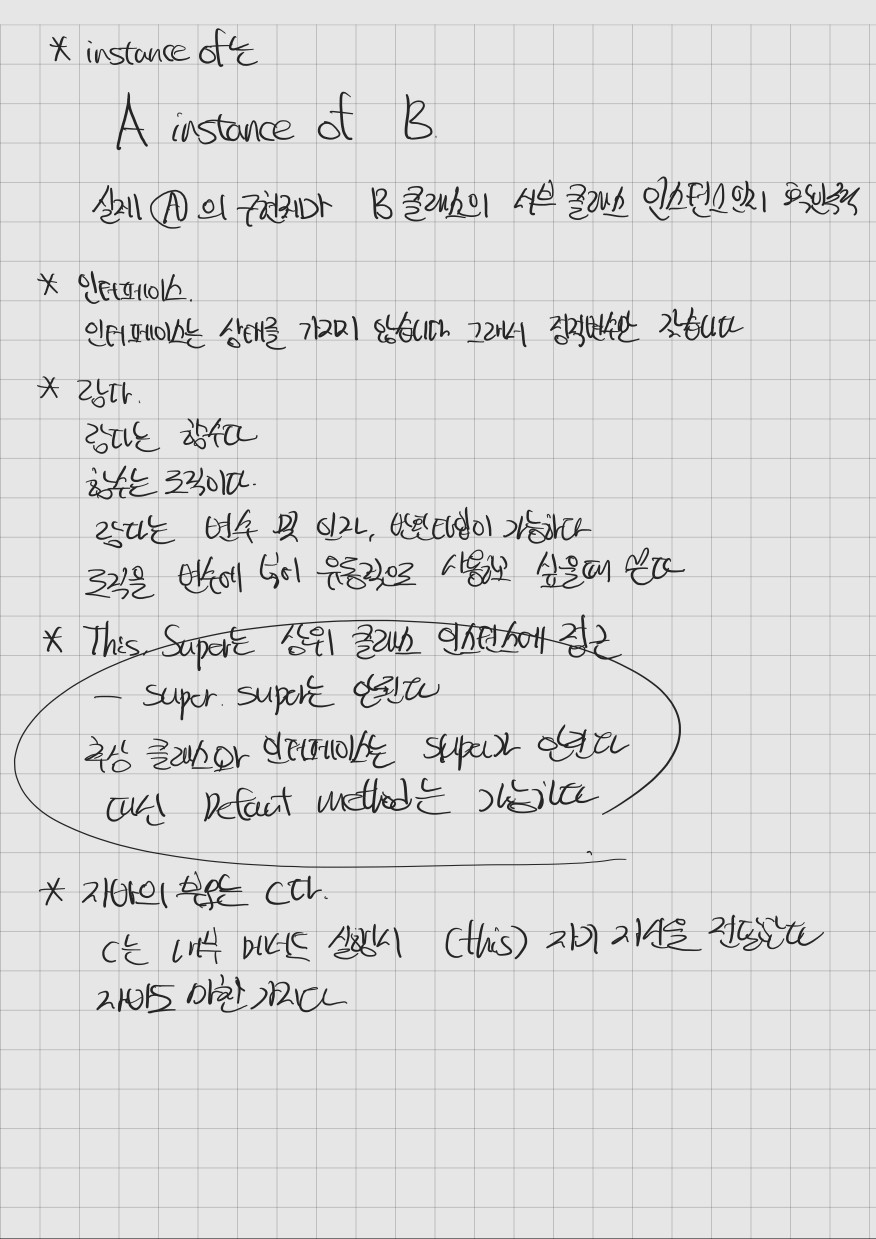 * instance of는
A instance of B
실제 Ⓐ의 구현체가 B클래스의 서브 클래스 인스턴스인지
* 인터페이스.
인터페이스는 상태를 가지지 않습니다 그래서 정적변수만 갖습니다
* 람다.
람다는 함수다
함수는 로직이다.
람다는 변수 및 인자, 반환타입이 가능하다
로직을 변수에 넣어 유동적으로 사용하고 싶을때 쓴다
* This, Super는 상위 클래스 인스턴스에 접근
— super. super는 안된다
추상 클래스와 인터페이스는 super가 안된다
대신 Default method는 가능하다
* 자바의 부모는 C다.
C는 내부 메서드 실행시 (this) 자기 자신을 전달한다
자바도 마찬가지다